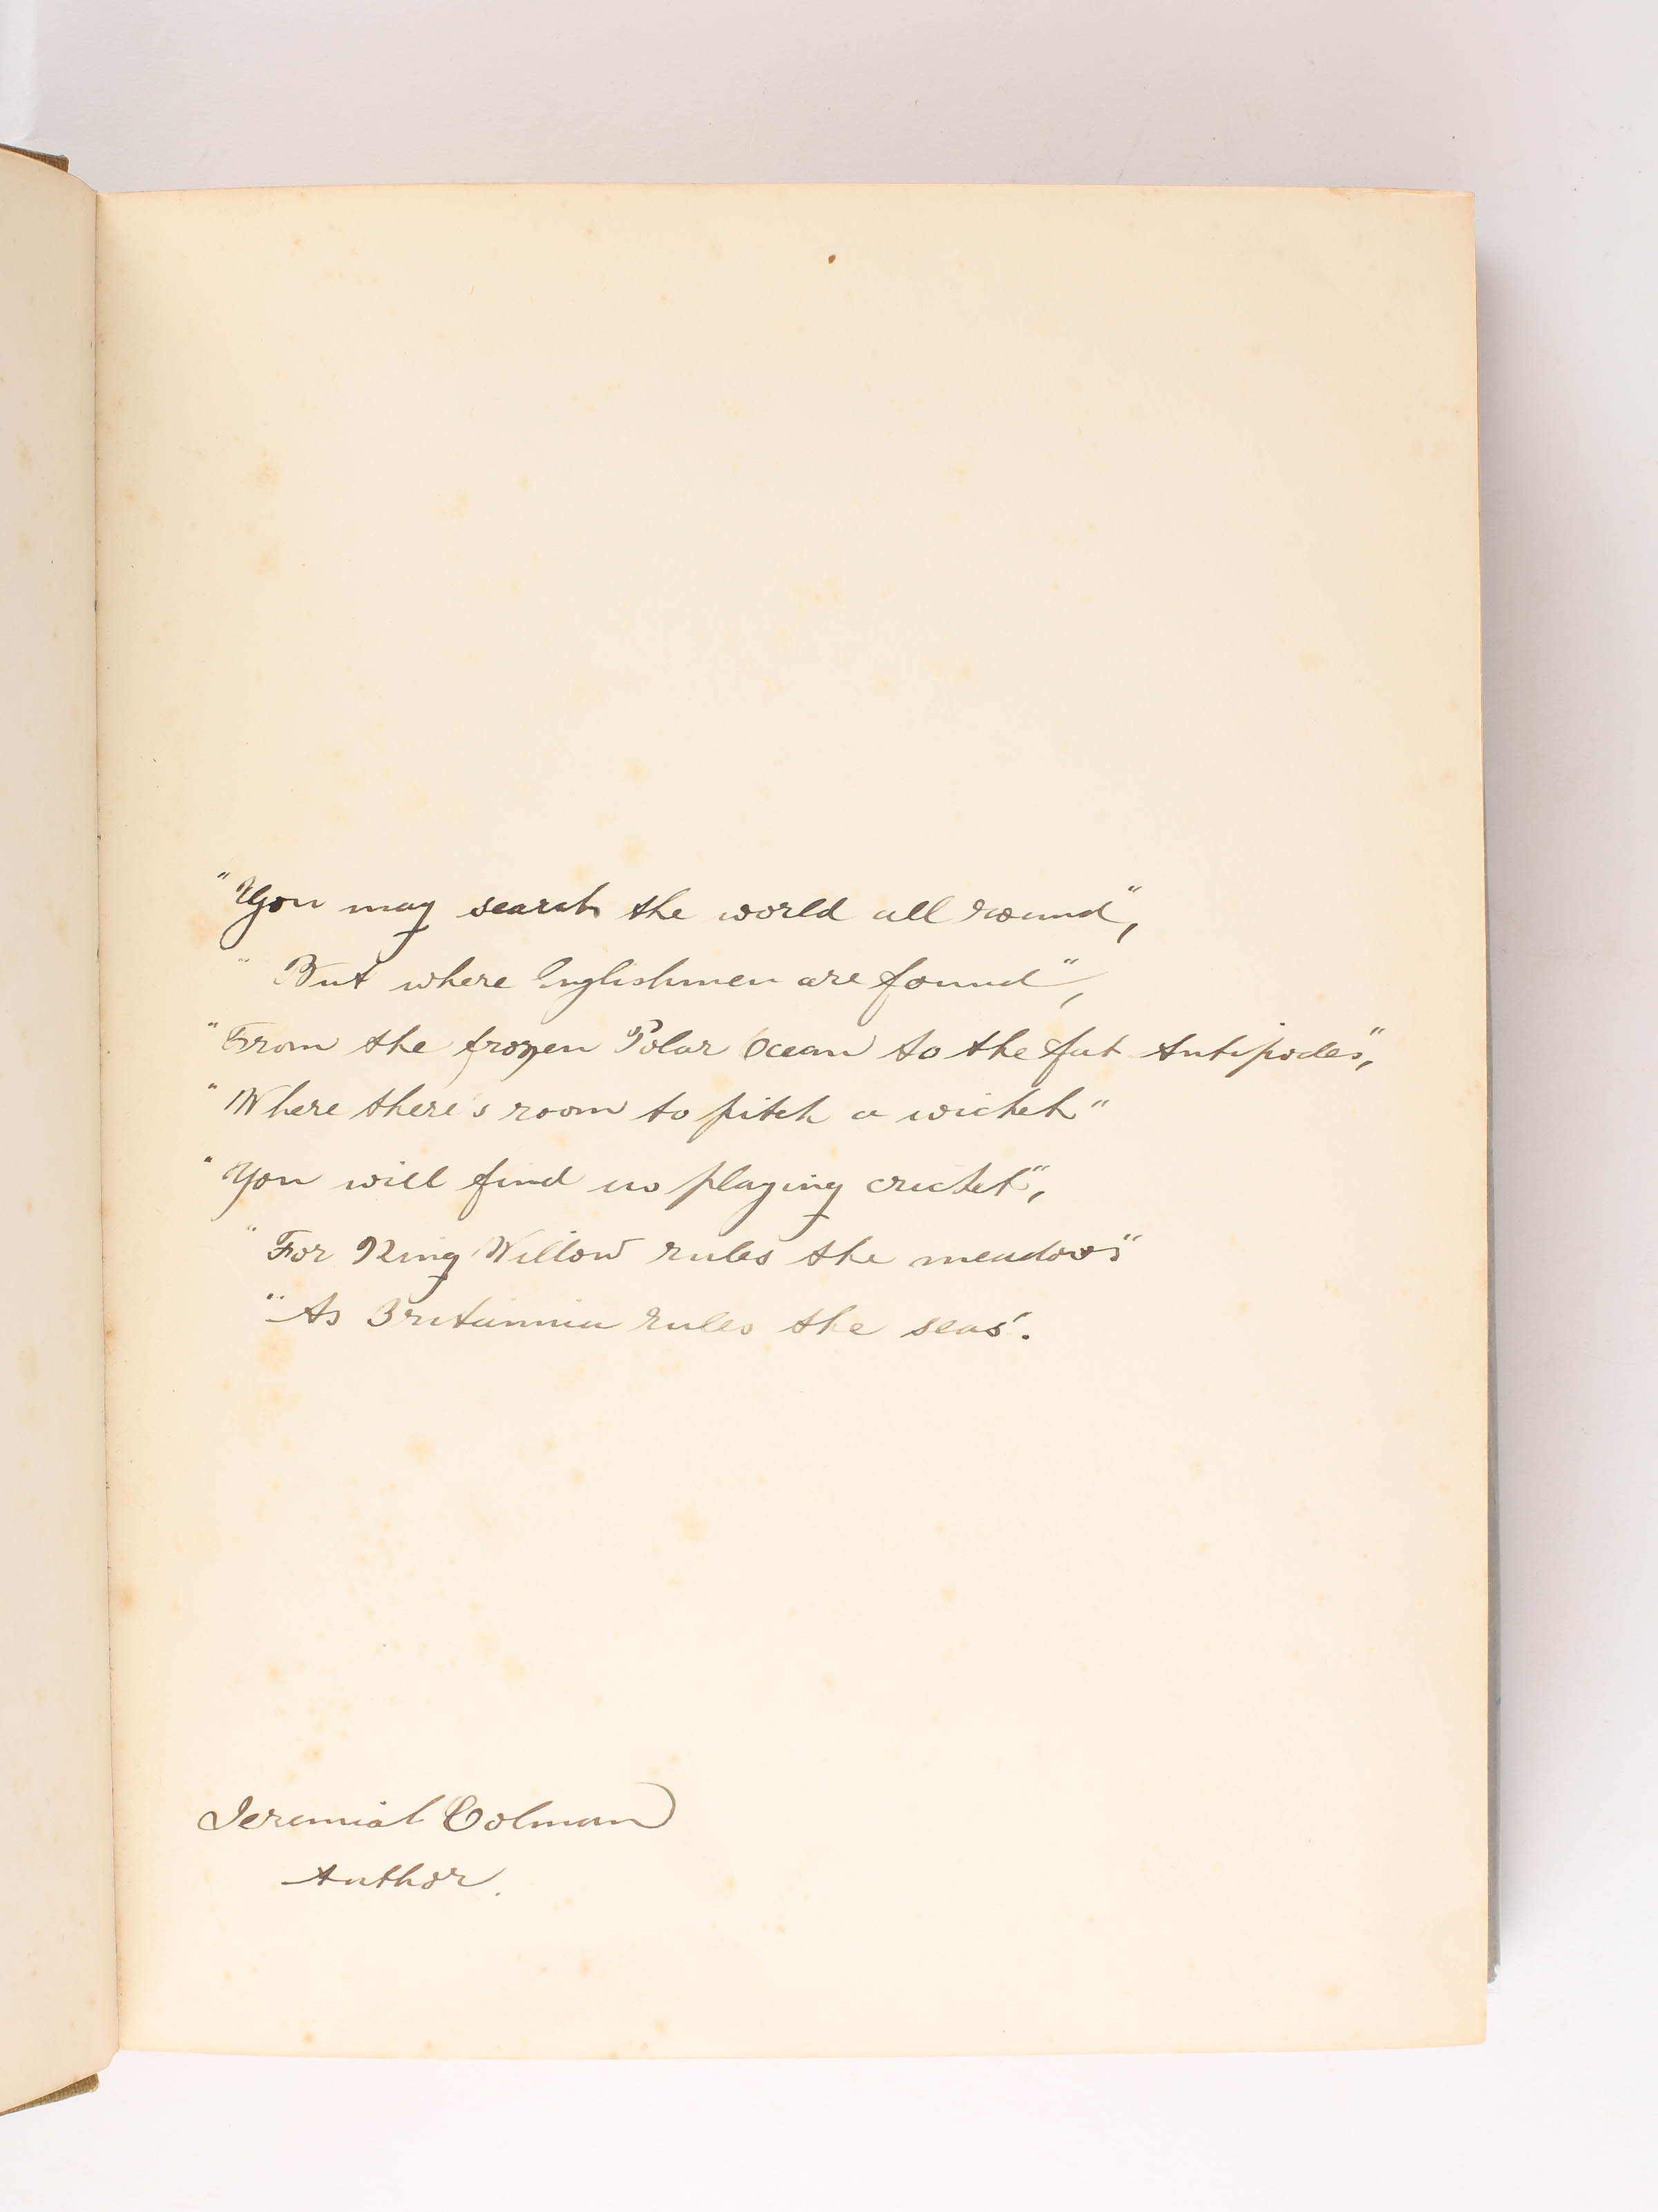 "You may search the world all round",
" But where Englishmen are found",
"From the frozen Polar Ocean to the fat Antipodes",
"Where there's room to pitch a wicket"
"You will find us playing cricket",
"For King Willow rules the meadows"
"As Britannia rules the seas".
Jeremiah Colman
Author.